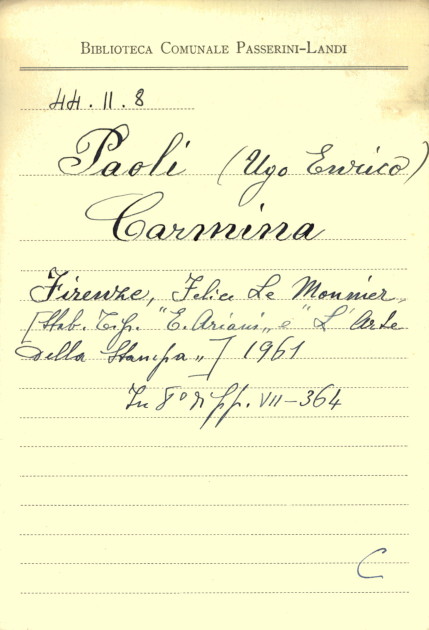 BIBLIOTECA COMUNALE PASSERINI-LANDI
44.II.8
Paoli (Ugo Enrico)
Carmina
Firenze, Felice Le Monnier,
[Stab. Tip. "E. Ariani„ e "L'Arte
della Stampa„] 1961
In 8° di pp. VII-364
C